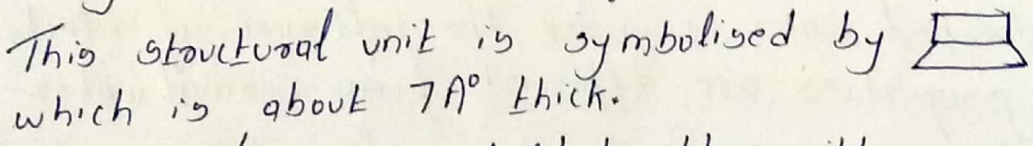 This structural unit is symbolised by
which is about 7A° thick.